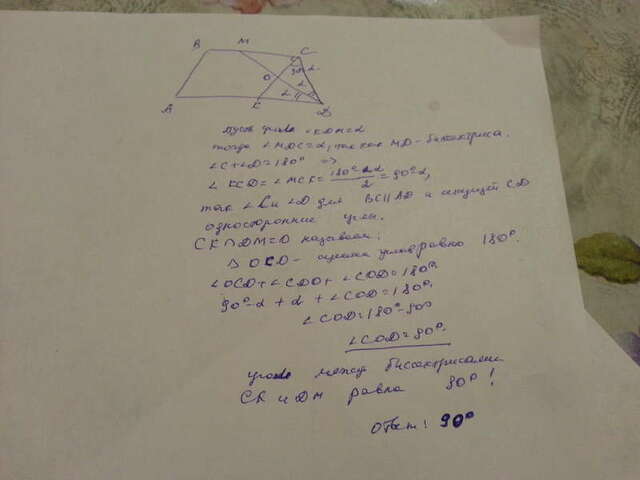 B M C
O 90-α
α
A K α D
пусть угол ∠KDM=α
тогда ∠MDC=α, так как MD-биссектриса.
∠C+∠D=180° =>
∠KCD=∠MCK=180°-2α/2=90°-α,
так ∠C и ∠D для BC||AD и секущей CD
односторонние углы.
CK∩DM=O назовем:
△OCD- сумма углов равно 180°.
∠OCD+∠CDO+∠COD=180°.
90°-α+α+∠COD=180°.
∠COD=180°-90°
∠COD=90°.
угол между биссектрисами
CK и DM равна 90°!
Ответ: 90°